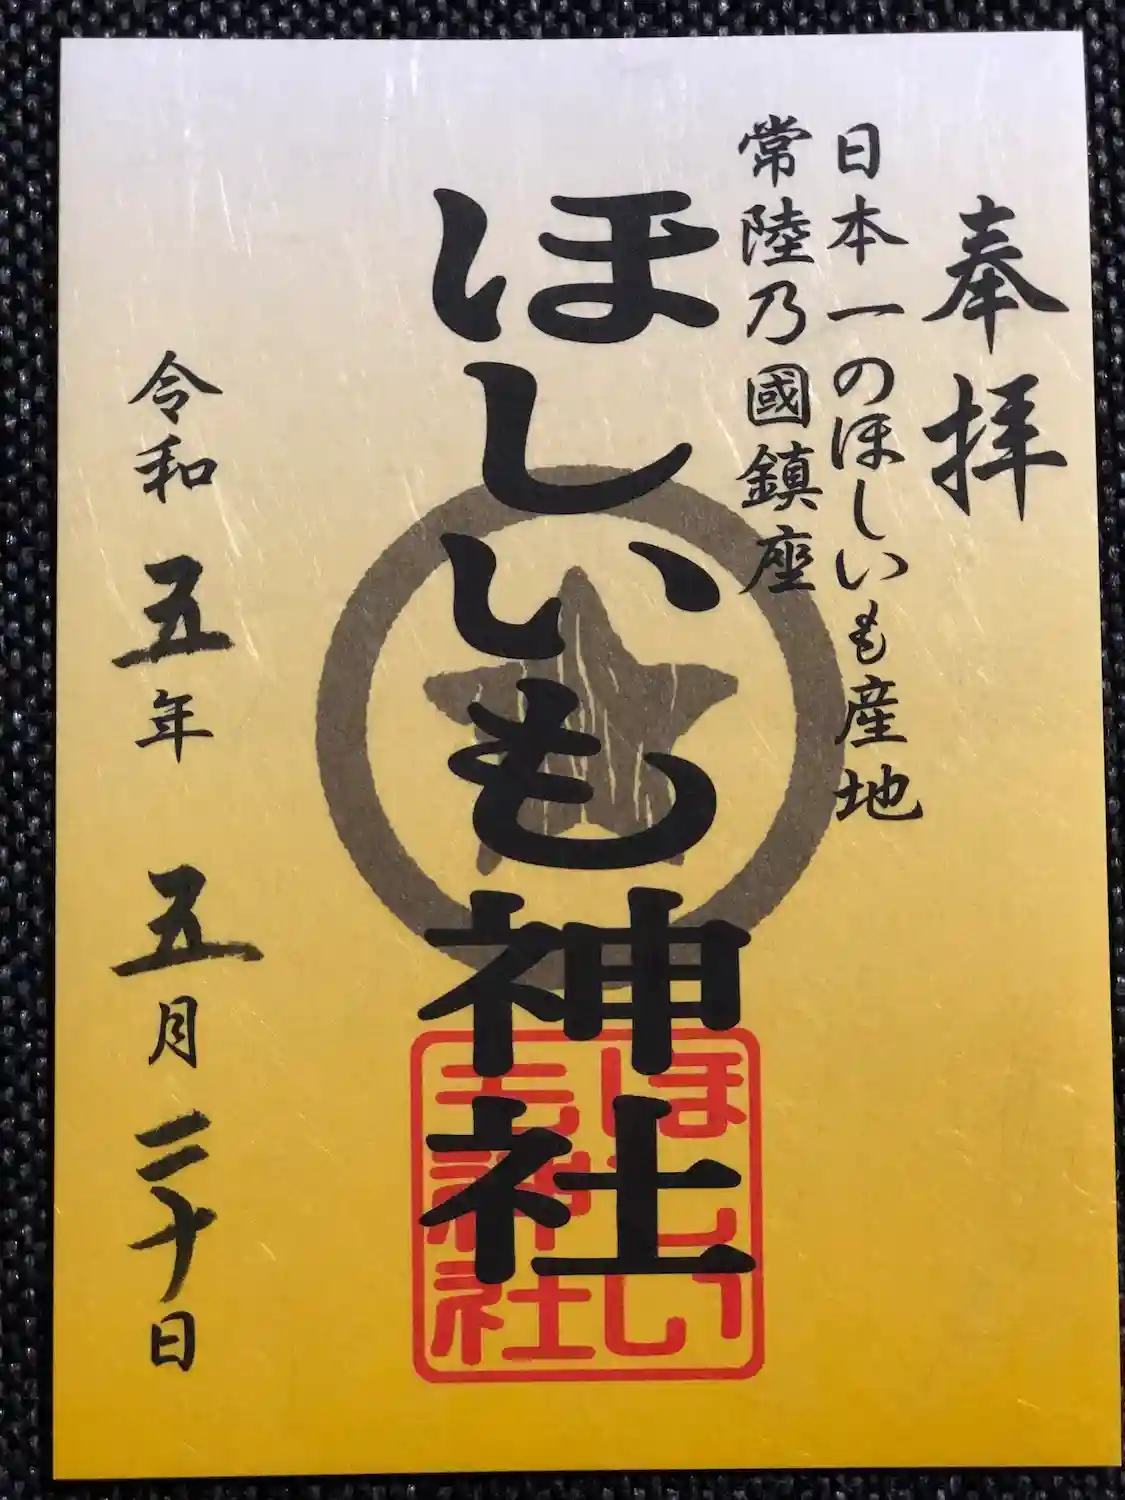 奉拝
日本一のほしいも産地
常陸乃國鎮座
ほしいも神社
ほしい
も神社
令和五年五月二十日